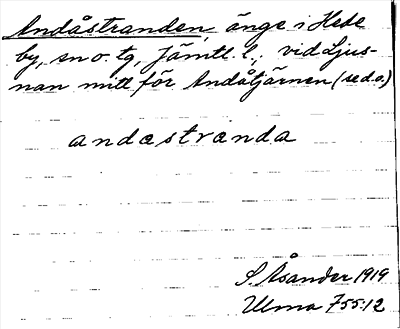 Andåstranden, änge i Hede
by, sn o. tg, Jämtl. l., vid Ljus-
nan mitt för Andåtjärnen (se d.o.)
andastranda
S. Åsander 1919
Ulma 755:12